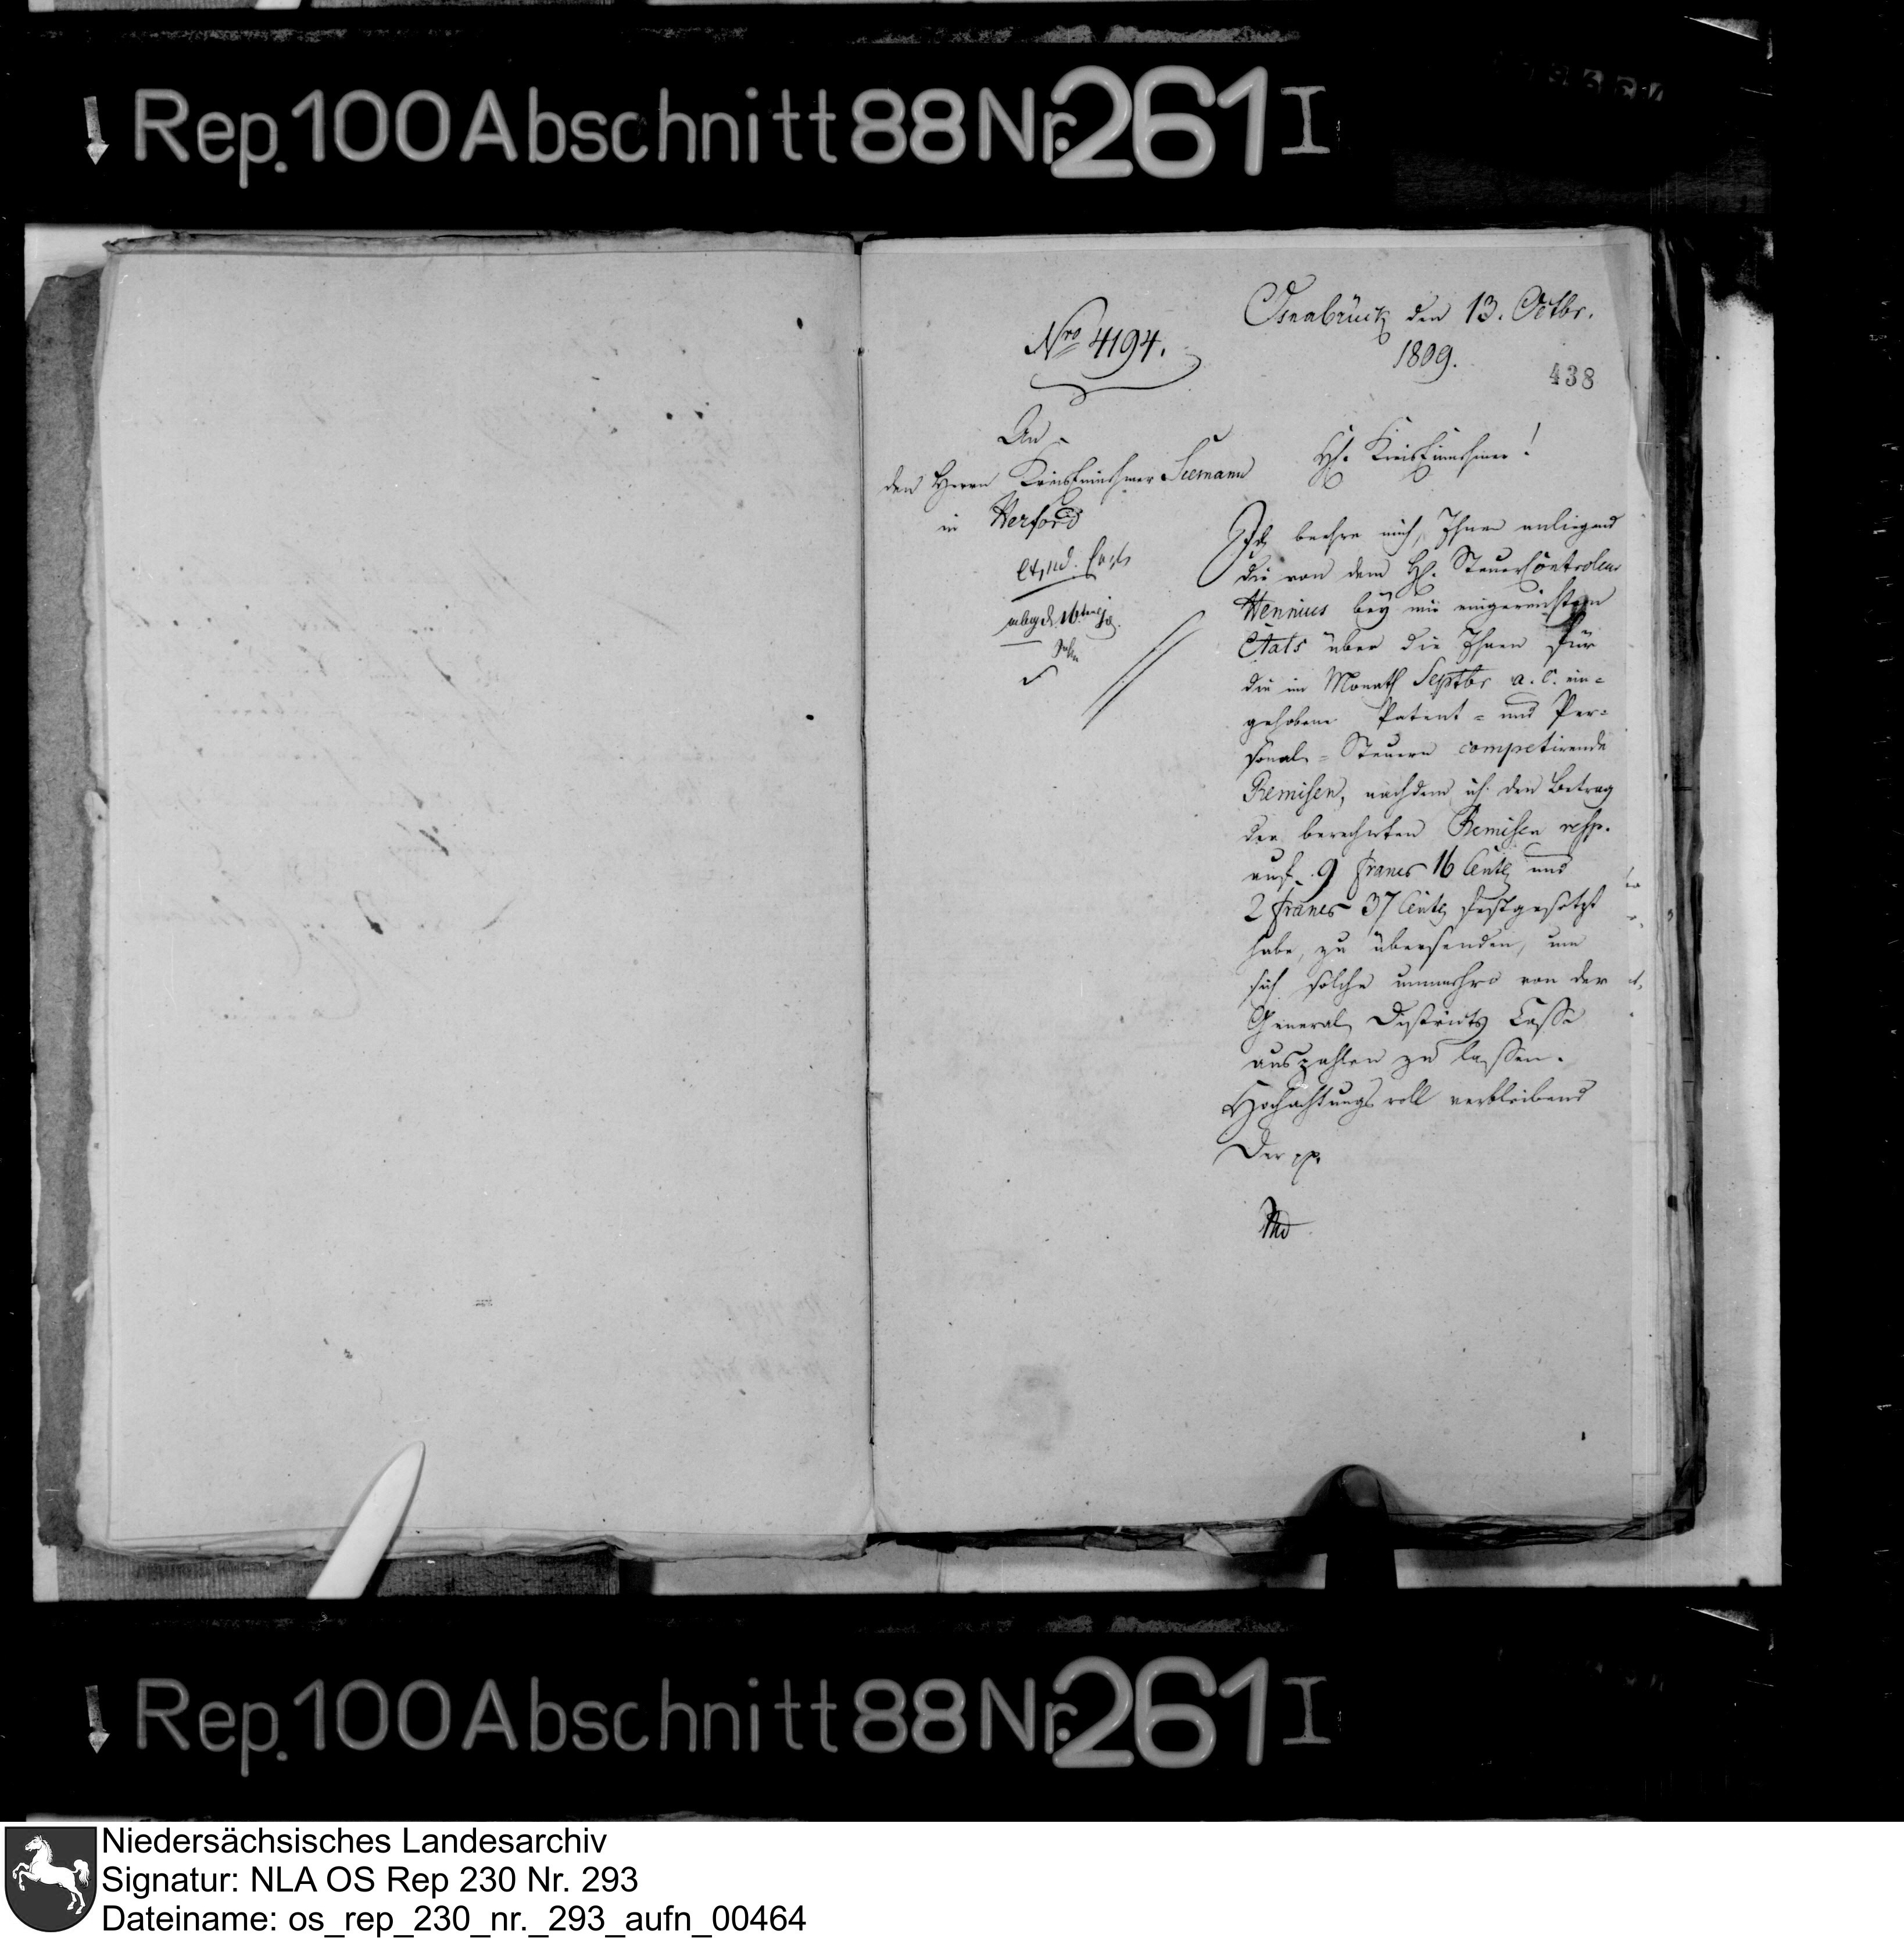 Rep. 100 Abschnitt 88 Nr. 261 I
Osnabrück den 13. Octbr.
1809.
438
Nro 4194.
An
den Herrn KreisEinnehmer Seemann
in Herford
Hr. KreisEinnehmer!
Ich beehre mich, Ihnen anliegend
die von dem Hr. SteuerControleur
Hennius bey mir eingereichten
Etats über die Ihnen für
die im Monath Septbr a. c. ein=
gehobene Patent = und Per=
sonal = Steuern competirende
Remisen, nachdem ich den Betrag
der berechneten Remisen resp.
auf 9 Francs 16 Cent und
2 Francs 37 Cent festgesetzt
habe, zu übersenden, um
sich solche nunmehro von der
General Districts Casse
auszahlen zu lassen.
Hochachtungsvoll verbleibend
Der pp.
Rep. 100 Abschnitt 88 Nr. 261 I
Niedersächsisches Landesarchiv
Signatur: NLA OS Rep 230 Nr. 293
Dateiname: os_rep_230_nr._293_aufn_00464